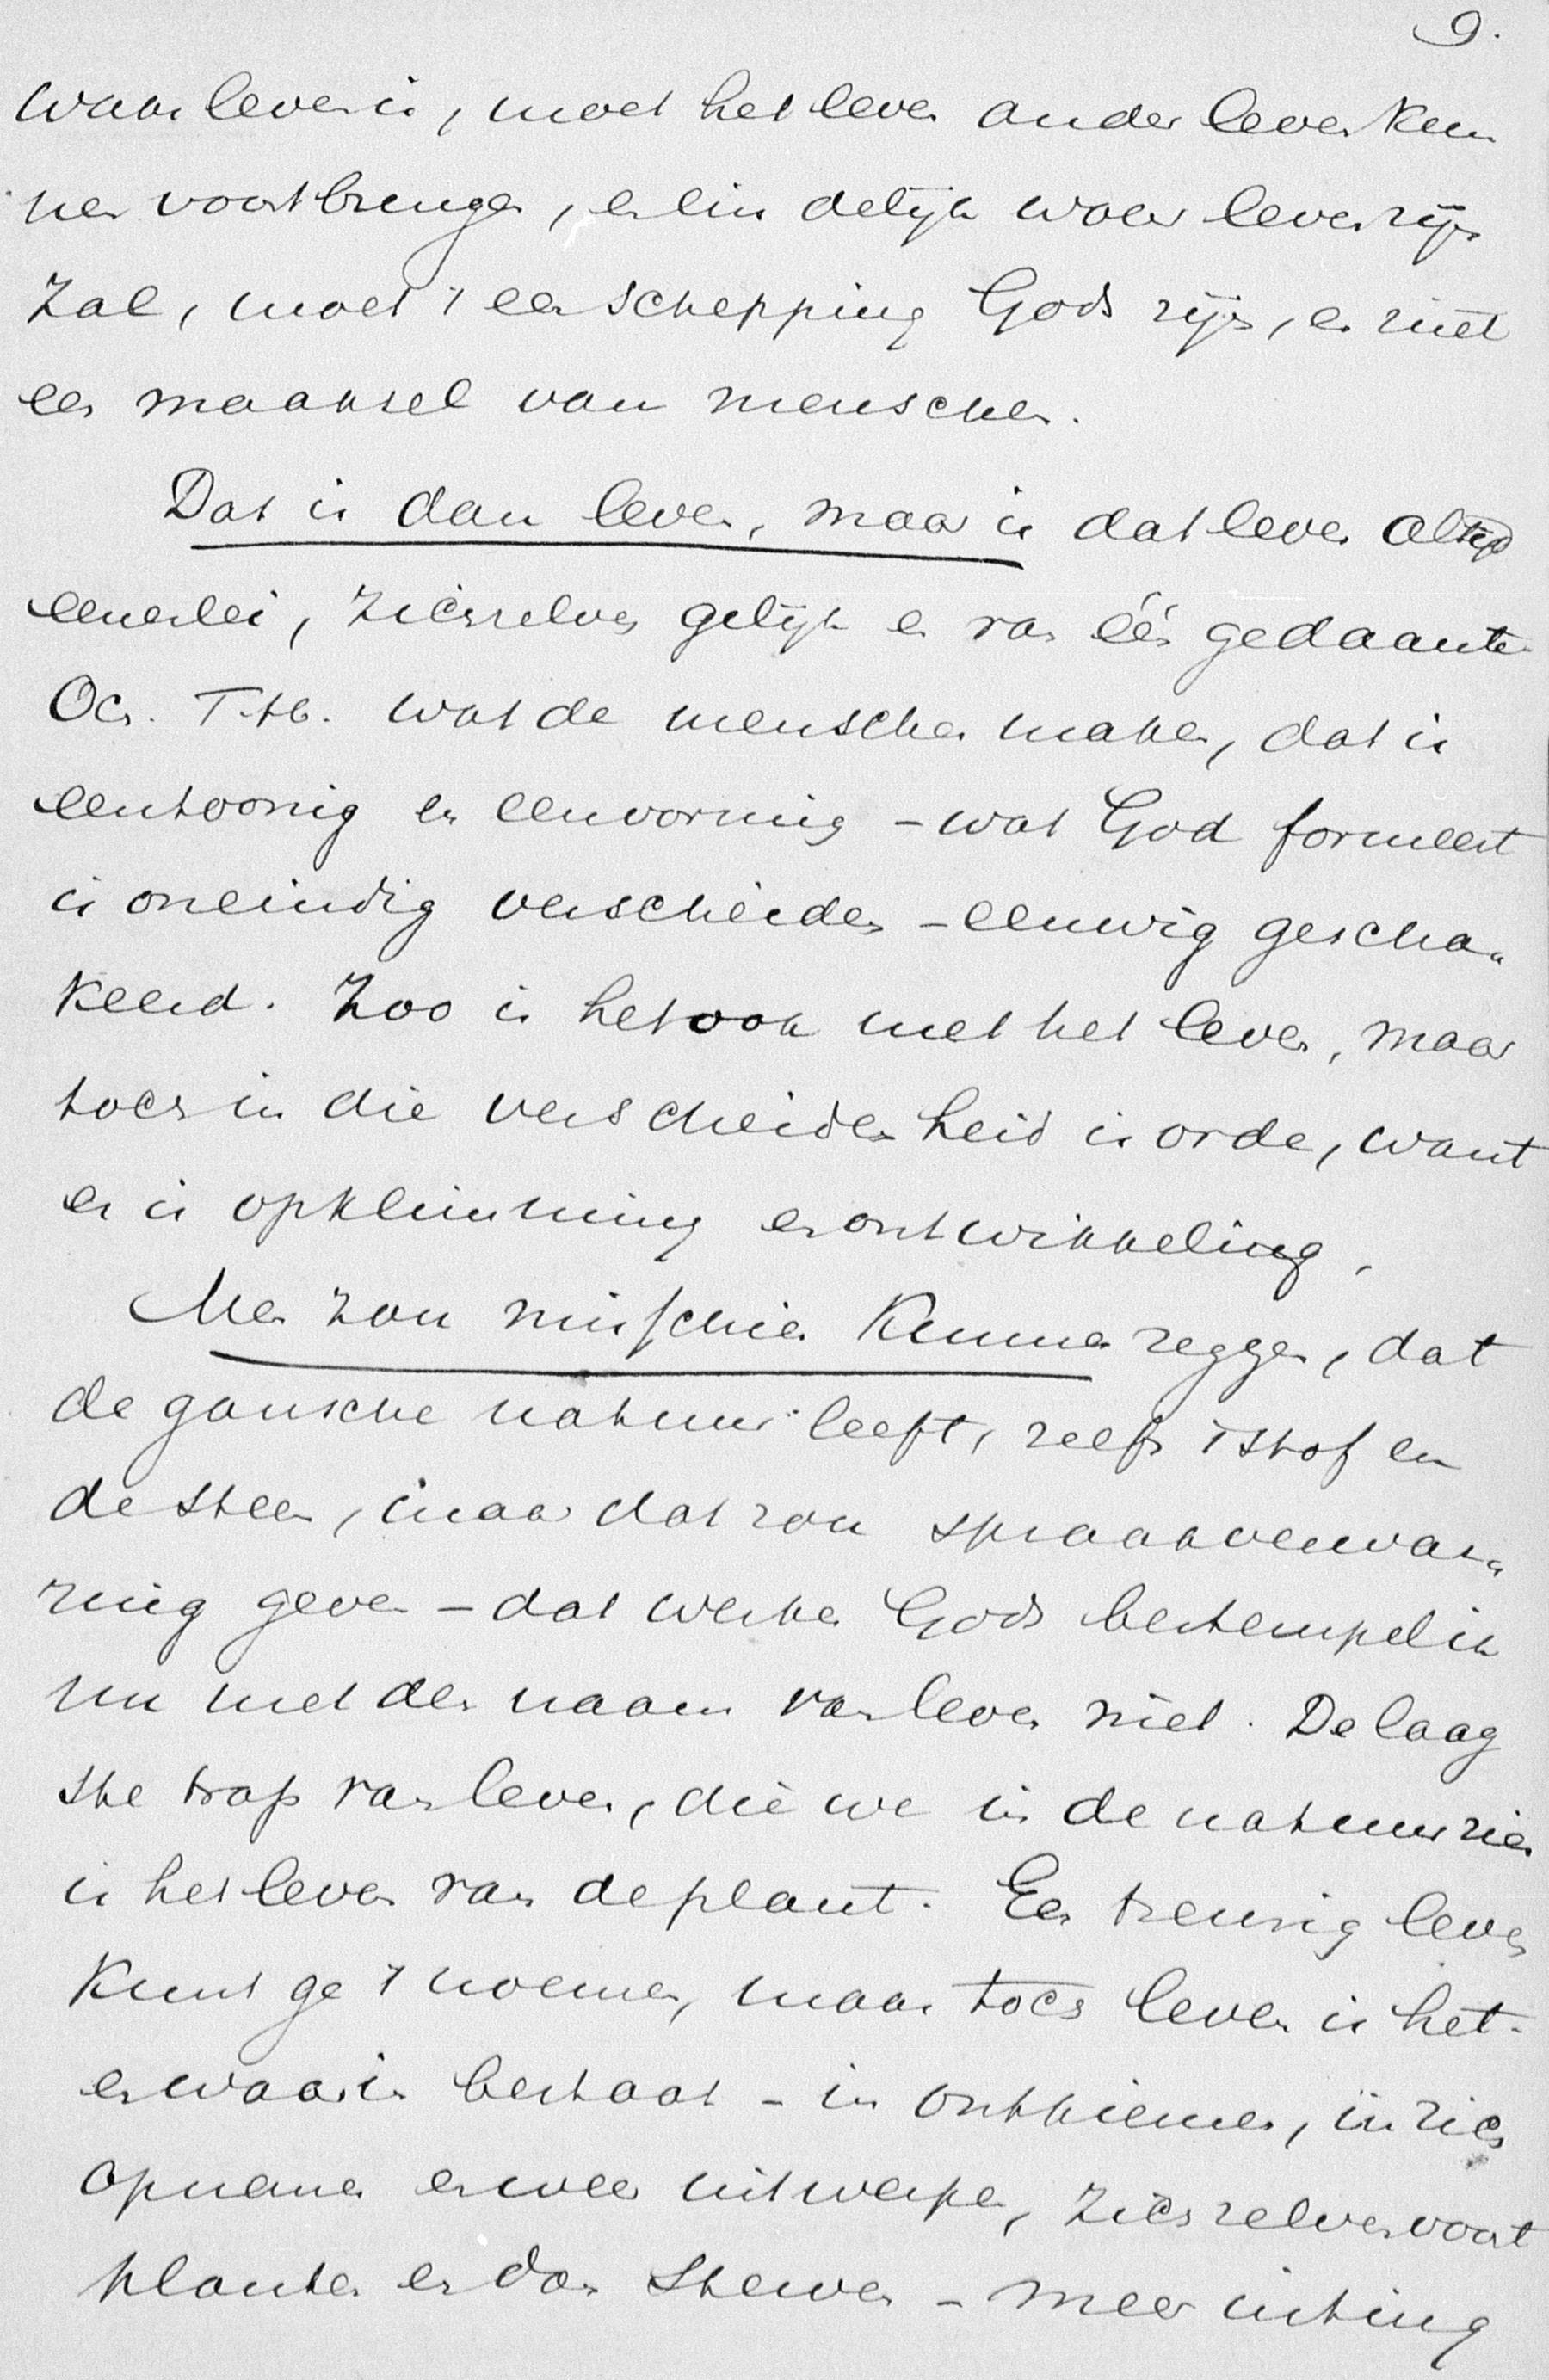 9.
waar leven is, moet het leven ander leven kun
nen voortbrengen, en eindelijk waar leven zijn
zal, moet 't een schepping Gods zijn, en niet
een maaksel van menschen.
Dat is dan leven, maar is dat leven altijd
eenerlei, zichzelven gelijk en van één gedaante
Och. T.H. wat de menschen maken, dat is
eentoonig en eenvormig - wat God formeert
is oneindig verscheiden - eeuwig gescha„
keerd. Zoo is het ook met het leven, maar
toch in die verscheidenheid is orde, want
er is opklimming en ontwikkeling,
Men zou misschien kunnen zeggen, dat
de gansche natuur leeft, zelfs 't stof en
de steen, maar dat zou spraakverwar„
ring geven - dat werken Gods bestempel ik
nu met den naam van leven niet. De laag
ste trap van leven, die we in de natuur zien
is het leven van de plant. Een treurig leven
kunt ge 't noemen, maar toch leven is het.
en waarin bestaat - in ontkiemen, in zich
opnemen en weer uitwerpen, zichzelven voort
planten en dan sterven - meer niting